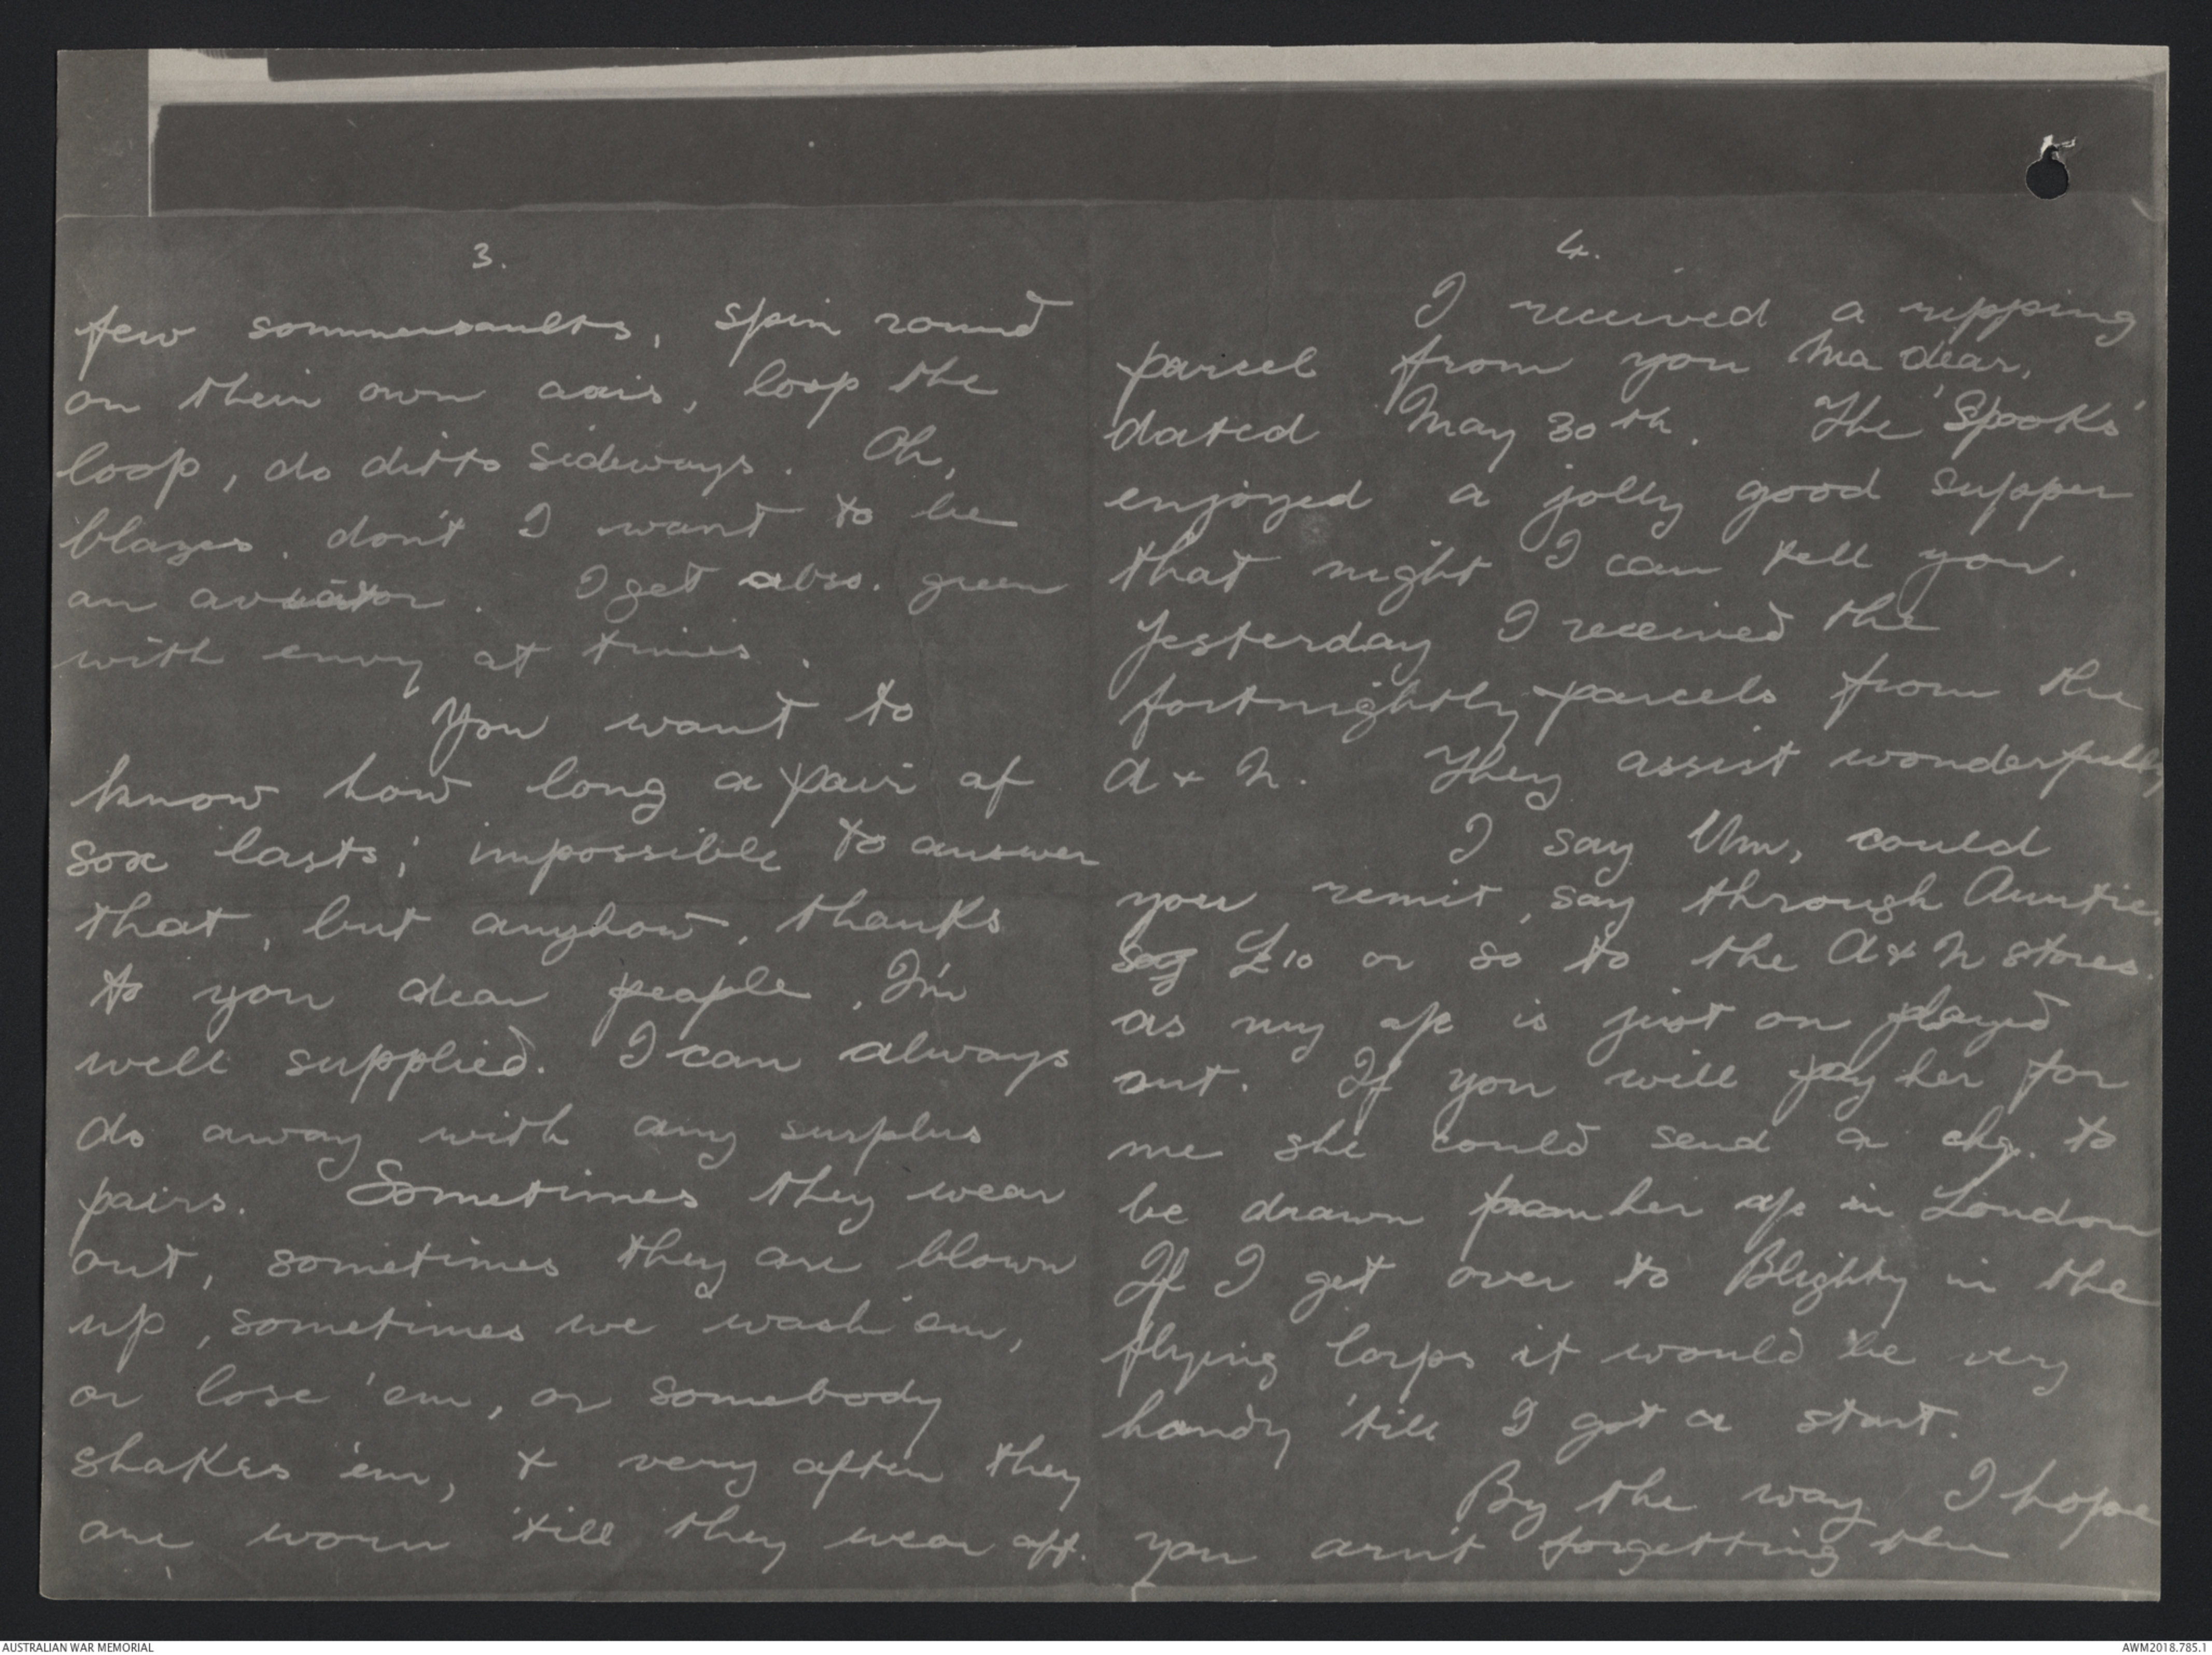 3.
few sommersaults, spin round
on their own axis, loop the
loop, do ditto sideways. Oh,
blazes, don't I want to be
an aviator. I get abso. green
with envy at times.
You want to
know how long a pair of
sox lasts; impossible to answer
that, but anyhow, thanks
to you dear people, I'm
well supplied. I can always
do away with any surplus
pairs. Sometimes they wear
out, sometimes they are blown
up, sometimes we wash 'em,
or lose 'em, or somebody
shakes 'em, & very often they
are worn 'till they wear off.
4.
I received a ripping
parcel from you Ma dear,
dated May 30th. The 'Spooks'
enjoyed a jolly good supper
that night I can tell you.
Yesterday I received the
fortnightly parcels from the
A & N. They assist wonderfully
I say Um, could
you remit, say through Auntie,
say £10 or so to the A & N stores.
as my a/c is just on played
out. If you will pay her for
me she could send a chq. to
be drawn from her a/c in London
If I get over to Blighty in the
flying Corps it would be very
handy 'till I got a start.
By the way I hope
you arn't forgetting the
AUSTRALIAN WAR MEMORIAL
AWM2018.785.1